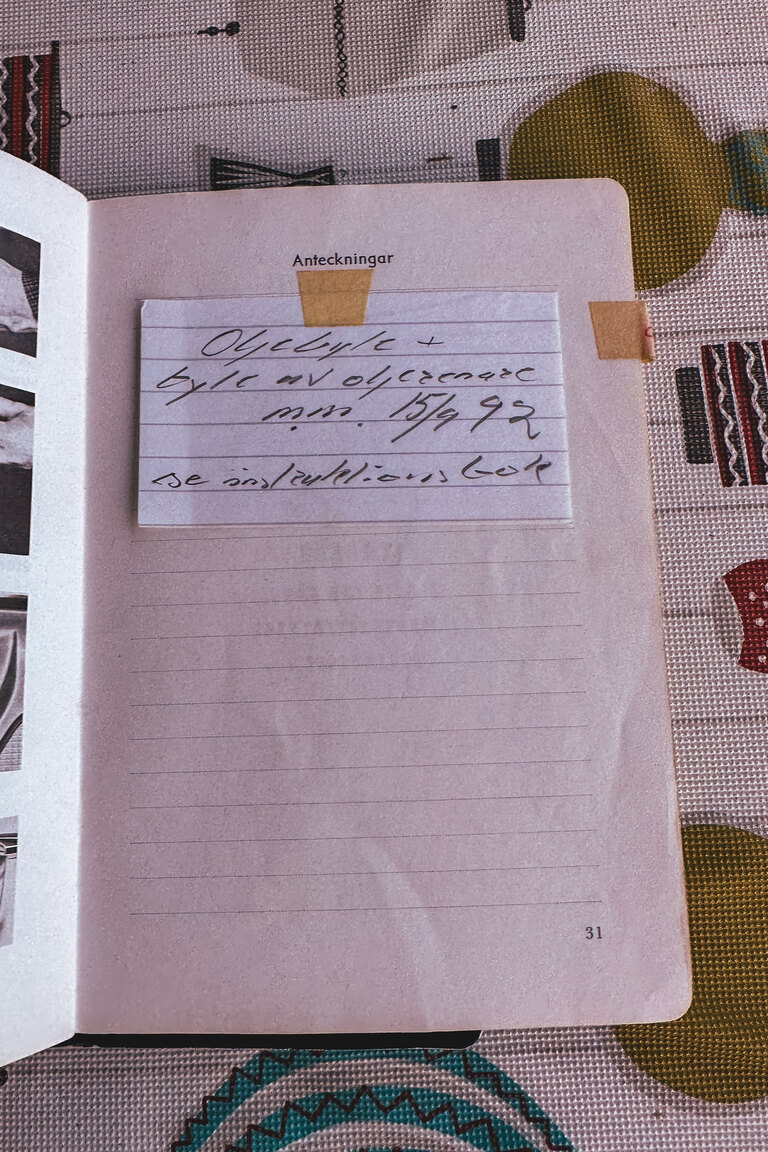 Anteckningar
Oljebyte +
byte av oljerenare
m.m. 15/9 92
se instruktions bok
31